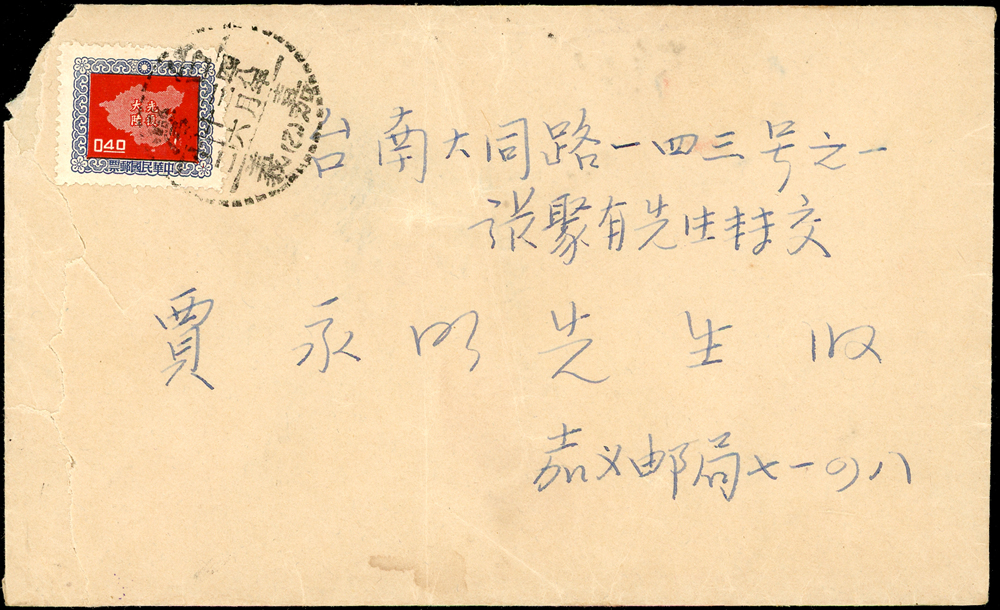 台南大同路一四三号之一
张聚有先生转交
賈永明先生收
嘉义邮局七一の八
光復
大陸
040
中華民國郵票
嘉義